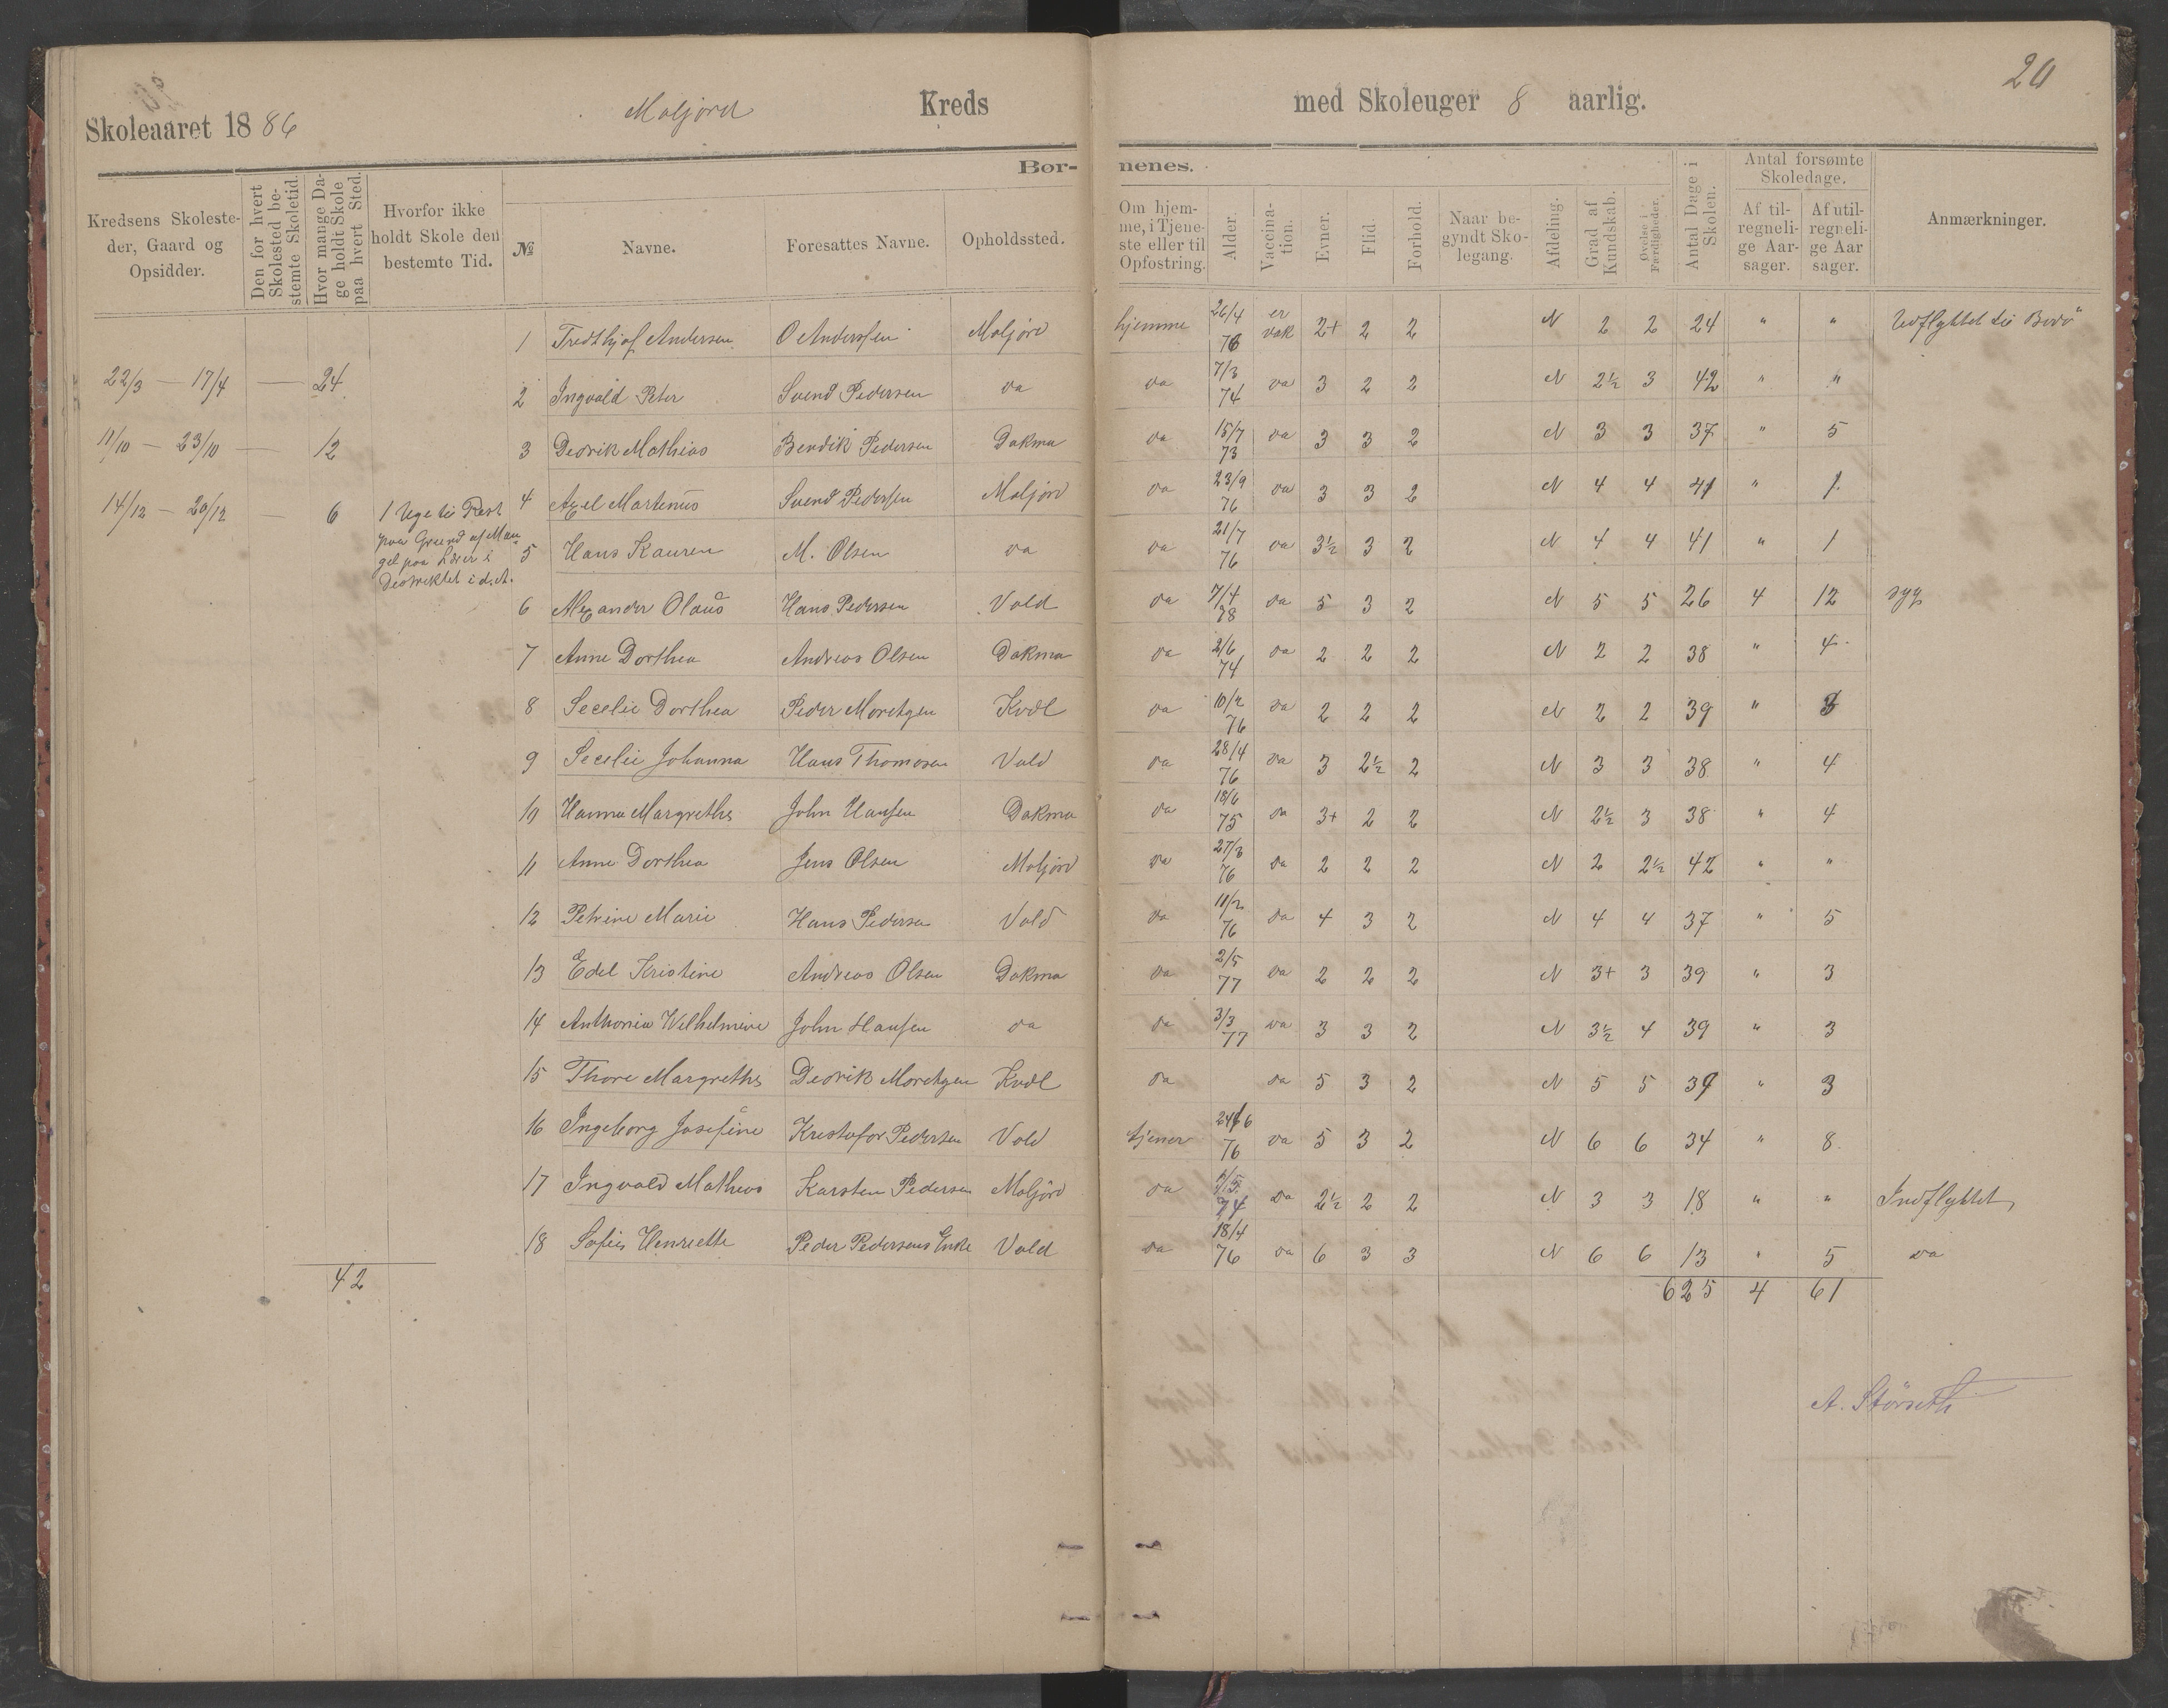 20
Skoleaaret 1886 Maljord Kreds med Skoleuger 8 aarlig.
Børnenes.
Kredsens Skolesteder, Gaard og Opsidder.
Den for hvert Skolested bestemte Skoletid.
Hvor mange Dage holdt Skole paa hvert Sted.
Hvorfor ikke holdt Skole den bestemte Tid.
№
Navne.
Foresattes Navne.
Opholdssted.
Om hjemme, i Tjeneste eller til Opfostring.
Alder.
Vaccination.
Evner.
Flid.
Forhold.
Naar begyndt Skolegang.
Afdeling.
Grad af Kundskab.
Øvelse i Færdigheder.
Antal Dage i Skolen.
Antal forsømte Skoledage.
Af tilregnelige Aarsager.
Af utilregnelige Aarsager.
Anmærkninger.
1 Fredthjof Andersen O Anderssen Maljord hjemme 26/4 76 er vak 2+ 2 2 N 2 2 24 " " Udflyttet til Bodö
22/3 — 17/4 — 24
2 Ingvald Peter Svend Pedersen da da 7/3 74 da 3 2 2 N 2½ 3 42 " "
11/10 — 23/10 — 12
3 Dedrik Mathias Bendik Pedersen Dokma da 15/7 73 da 3 3 2 N 3 3 37 " 5
14/12 — 20/12 — 6
1 Uge til Rest paa Grund af Mangel paa Lærer i Destriktet i d. A.
4 Axel Martenus Svend Pedersen Maljord da 23/9 76 da 3 3 2 N 4 4 41 " 1
5 Hans Kauren M. Olsen da da 21/7 76 da 3½ 3 2 N 4 4 41 " 1
6 Alexander Olaus Hans Pedersen Vold da 7/4 78 da 5 3 2 N 5 5 26 4 12 syg
7 Anne Dorthea Andreas Olsen Dokma da 2/6 74 da 2 2 2 N 2 2 38 " 4
8 Secelie Dorthea Peder Moretzen Kvdl da 10/2 76 da 2 2 2 N 2 2 39 " 3
9 Secelie Johanna Hans Thomasen Vold da 28/4 76 da 3 2½ 2 N 3 3 38 " 4
10 Hanna Margrethe John Hansen Dokma da 18/6 75 da 3+ 2 2 N 2½ 3 38 " 4
11 Anne Dorthea Jens Olsen Maljord da 27/3 76 da 2 2 2 N 2 2½ 42 " "
12 Petrine Marie Hans Pedersen Vold da 11/2 76 da 4 3 2 N 4 4 37 " 5
13 Edel Kristine Andreas Olsen Dokma da 2/5 77 da 2 2 2 N 3+ 3 39 " 3
14 Anthonie Wilhelmine John Hansen da da 3/3 77 da 3 3 2 N 3½ 4 39 " 3
15 Thore Margrethe Dedrik Moretzen Kvdl da da 5 3 2 N 5 5 39 " 3
16 Ingeborg Josefine Krestofor Pedersen Vold tjener 24/6 76 da 5 3 2 N 6 6 34 " 8
17 Ingvald Matheus Karsten Pedersen Maljord da 74 da 2½ 2 2 N 3 3 18 " " Indflyttet
18 Sofie Henriette Peder Pedersens Enke Vold da 18/4 76 da 6 3 3 N 6 6 13 " 5 da
42 625 4 61
A. Störseth